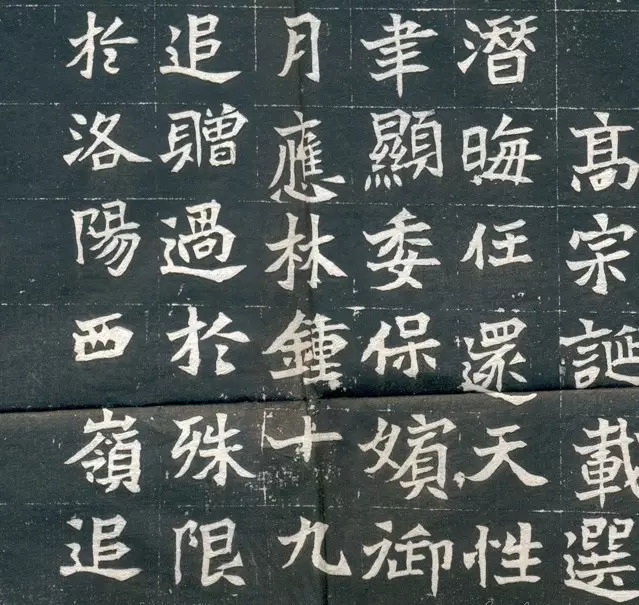 髙宗誕載選
潜晦任還天性
聿顯委保嬪御
月應林鍾十九
追贈過於殊限
於洛陽西嶺追